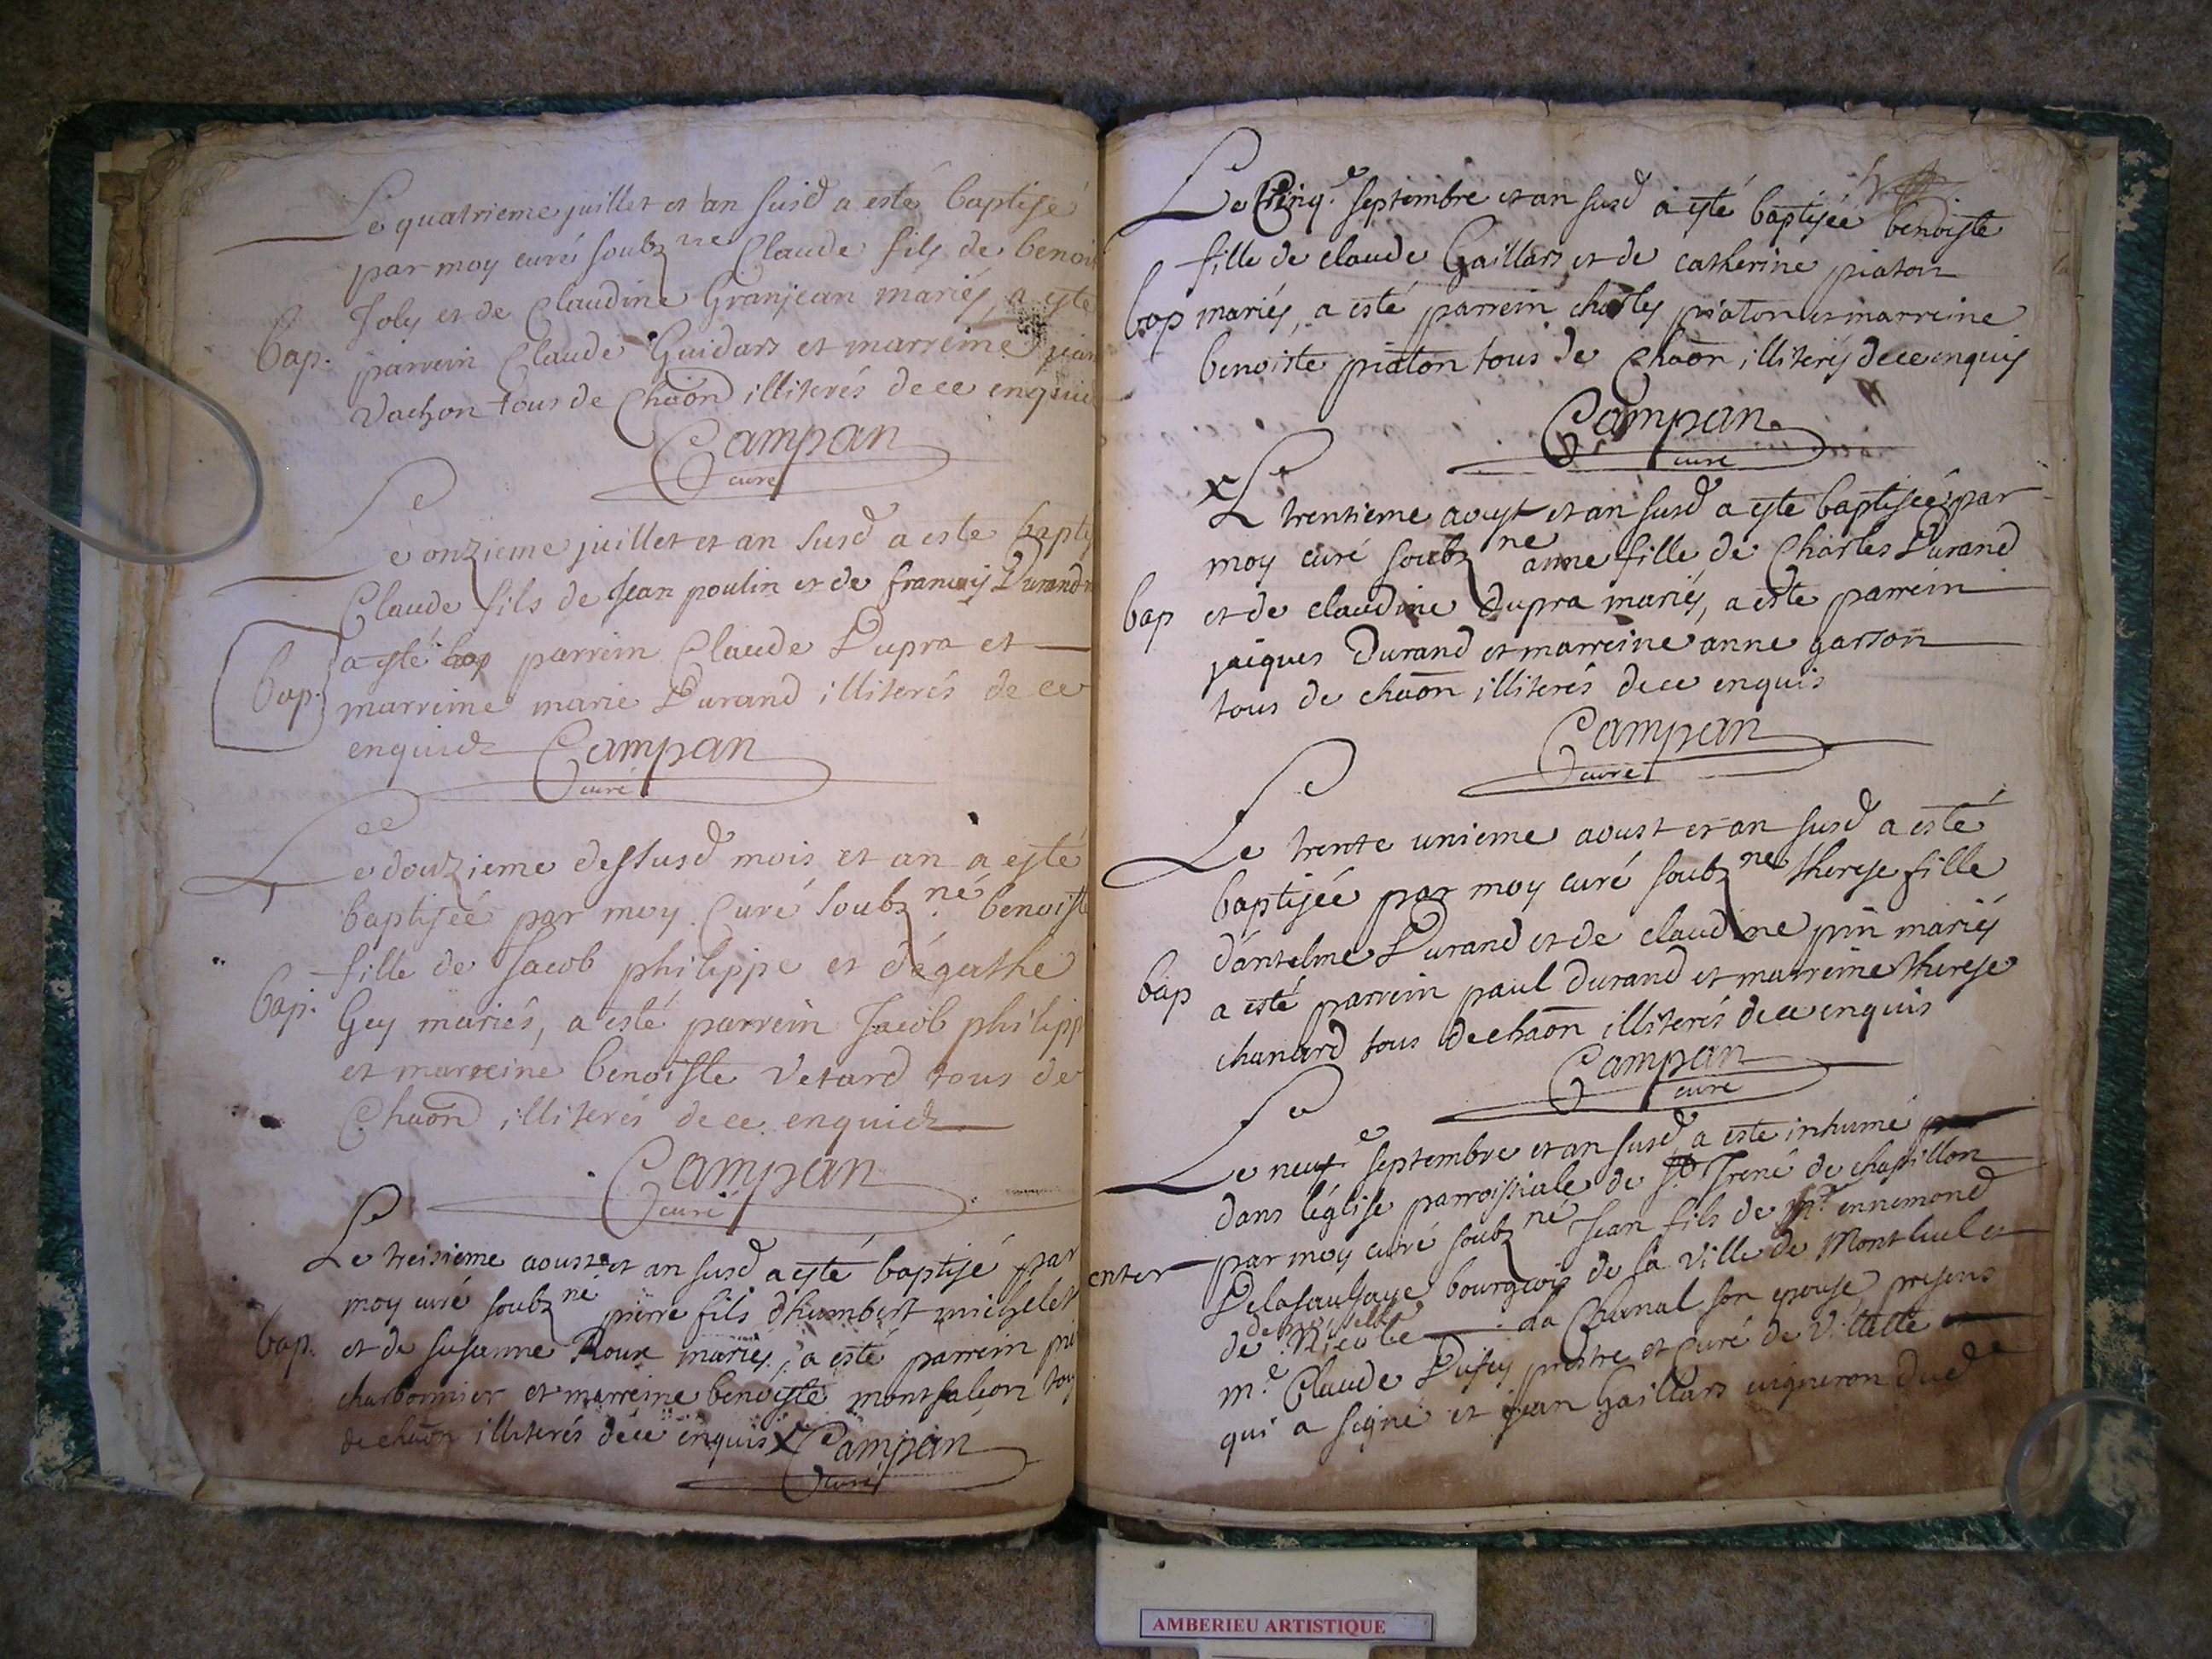 Le quatrieme juillet et an susd a esté baptisé
par moy curé soubz ne Claude fils de benoi
Joly et de Claudine Granjean mariés, a esté
bap. parrein Claude Guidars et marreine jean
Vachon tous de Chaôn illiterés de ce enquis
Campan
curé
Le onzieme juillet et an susd a esté bapti
Claude fils de Jean poulin et de francois Durand
a esté parrein Claude Dupra et
bap. marreine marie Durand illiterés de ce
enquidz Campan
curé
Le douzieme dessusd mois et an a esté
baptiseé par moy Curé soubz né benoist
fille de Jacob philippe et d'agathe
bap. Gey mariés, a esté parrein Jacob philipp
et marreine benoiste Vetard tous de
Chaôn illiterés de ce enquidz
Campan
curé
Le treisieme aoust et an susd a esté baptisé par
moy curé soubz né pierre fils d'humbert michelet
bap. et de susanne Roux mariés, a esté parrein pi
charbonnier et marreine benoiste montfalcon tou
de chaôn illiterés de ce enquis x Campan
curé
Le Cinq.e septembre et an susd a esté baptisée benoiste
fille de claude Gaillars et de catherine piaton
bap mariés, a esté parrein charles piaton et marreine
benoiste piaton tous de Chaôn illiterés de ce enquis
Campan
curé
x Le trentieme aoust et an susd a esté baptiseé par
moy curé soubz ne anne fille de Charles Durand
bap et de claudine dupra mariés, a esté parrein
jaiques Durand et marreine anne garson
tous de chaôn illiterés de ce enquis
Campan
curé
Le trente unieme aoust et an susd a esté
baptisée par moy curé soubz ne therese fille
d'antelme Durand et de claudine pin mariés
bap a esté parrein paul durand et marreine therese
chanard tous de chaôn illiterés de ce enquis
Campan
curé
Le neuf.e septembre et an susd a esté inhumé
dans l'église parroissiale de St Irené de chastillon
par moy curé soubz né Jean fils de mr ennemond
enter Delasausaye bourgeois de la ville de Montluel et
demoiselle
de Nicole da Chanal son epouse presens
m.e Claude Dufey prestre et curé de Vilette
qui a signé et jean Gaillars vigneron dud
AMBERIEU ARTISTIQUE